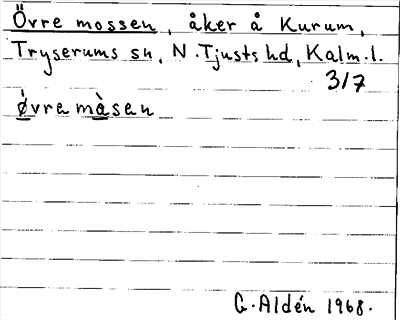 Övre mossen, åker å Kurum,
Tryserums sn, N. Tjusts hd, Kalm. l.
317
ǿvre màsen
G. Aldén 1968.